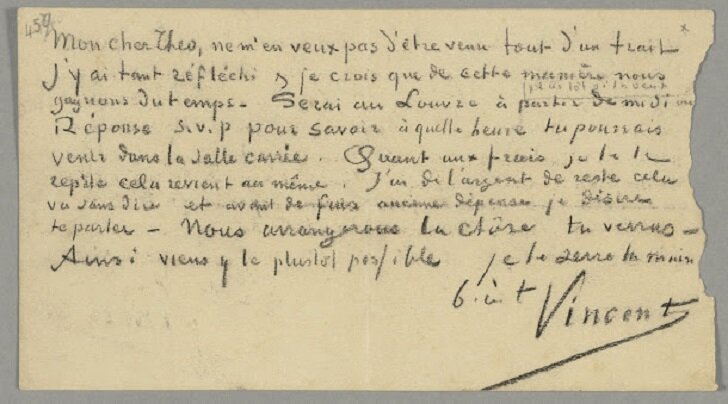 Mon cher Theo, ne m'en veux pas d'être venu tout d'un trait
J'y ai tant réfléchi & je crois que de cette manière nous
gagnons du temps - Serai au Louvre à partir de midi ou
plus tôt si tu veux
Réponse s.v.p pour savoir à quelle heure tu pourrais
venir dans la salle carrée. Quant aux frais je te le
repète cela revient au même. J'ai de l'argent de reste cela
va sans dire et avant de faire aucune dépense je désire
te parler - Nous arrangerons la chôse tu verras -
Ainsi viens y le plustot possible je te serre la main
b. à t
Vincent